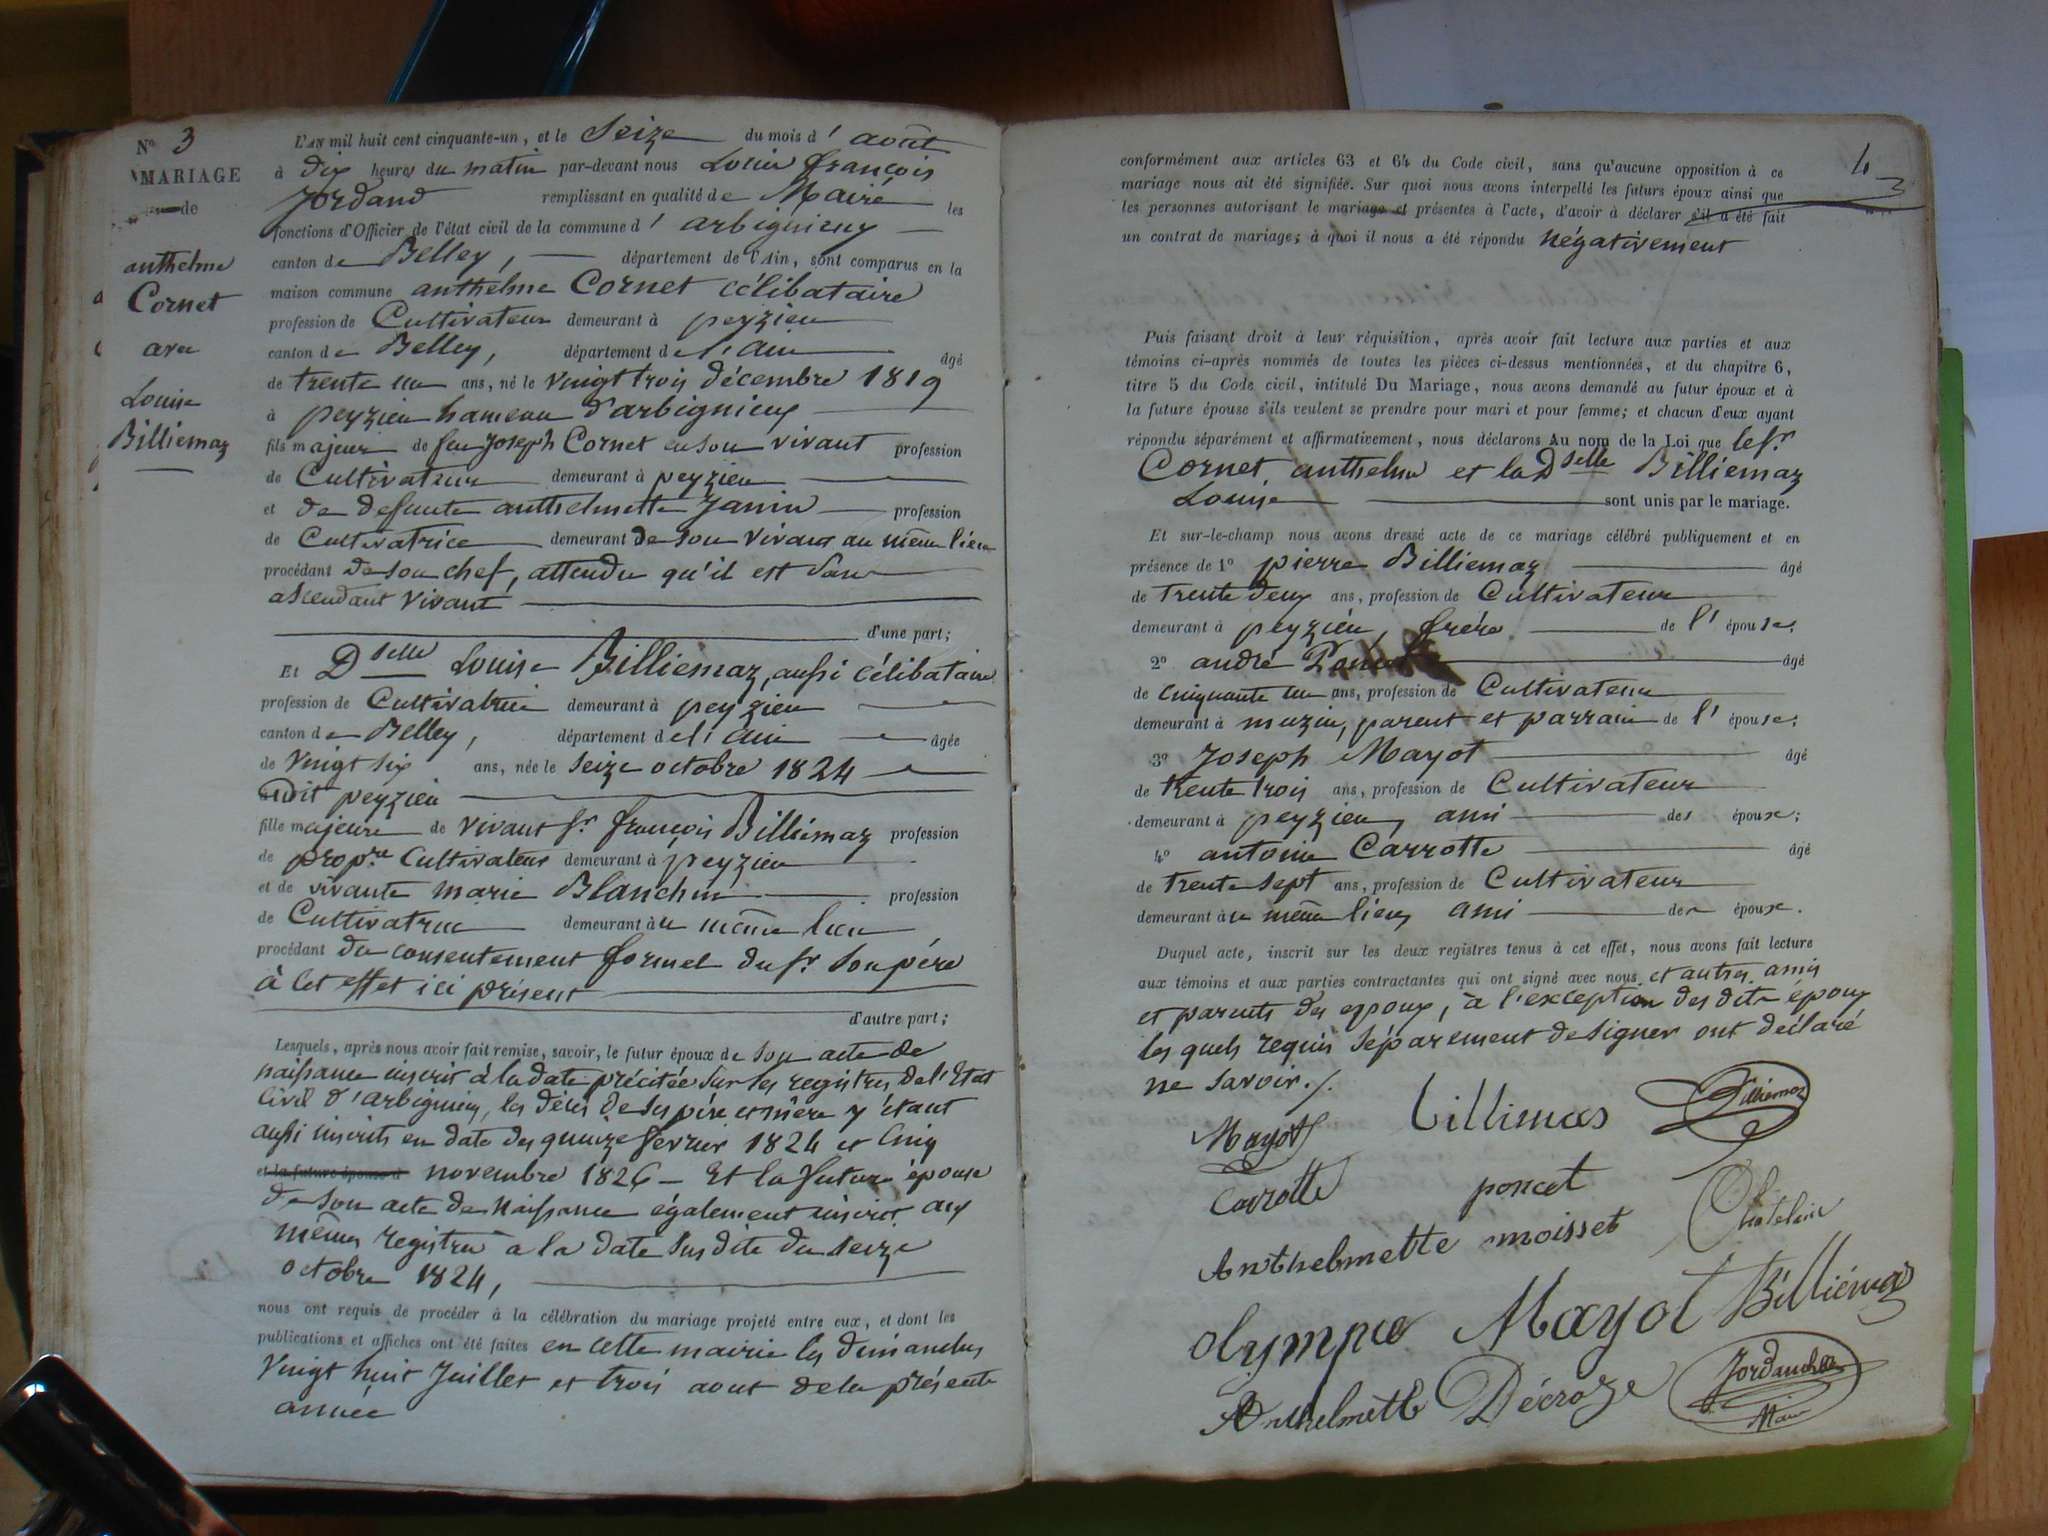 N° 3
MARIAGE
de
anthelme
Cornet
avec
Louise
Billiemaz
L'AN mil huit cent cinquante-un, et le Seize du mois d'août
à dix heures du matin par-devant nous Louis françois
Jordand remplissant en qualité de Maire les
fonctions d'Officier de l'état civil de la commune d'arbignieux
canton de Belley, département de l'Ain, sont comparus en la
maison commune anthelme Cornet célibataire
profession de Cultivateur demeurant à peyzieu
canton de Belley, département de l'ain âgé
de trente un ans, né le vingt trois décembre 1819
à peyzieu hameau d'arbignieux
fils majeur de feu Joseph Cornet en son vivant profession
de Cultivateur demeurant à peyzieu
et de defunte anthelmette Janin profession
de Cultivatrice demeurant de son vivant au même lieu
procédant de son chef, attendu qu'il est sans
ascendant vivant
d'une part;
Et Dselle Louise Billiemaz, aussi célibataire
profession de Cultivatrice demeurant à peyzieu
canton de Belley, département de l'ain âgée
de vingt six ans, née le seize octobre 1824
audit peyzieu
fille majeure de vivant Sr françois Billiémaz profession
de propre Cultivateur demeurant à peyzieu
et de vivante marie Blanchin profession
de Cultivatrice demeurant au même lieu
procédant du consentement formel du Sr son père
à cet effet ici présent
d'autre part;
Lesquels, après nous avoir fait remise, savoir, le futur époux de son acte de
naissance inscrit à la date précitée sur les registres de l'Etat
Civil d'arbignieux, les décès de ses père et mère y étant
aussi inscrits en date des quinze février 1824 et Cinq
et la future épouse d novembre 1826 - Et la future épouse
de son acte de Naissance également inscrit aux
mêmes registres à la date susdite du seize
octobre 1824,
nous ont requis de procéder à la célébration du mariage projeté entre eux, et dont les
publications et affiches ont été faites en cette mairie les dimanches
vingt huit Juillet et trois aout de la présente
année
4
3
conformément aux articles 63 et 64 du Code civil, sans qu'aucune opposition à ce
mariage nous ait été signifiée. Sur quoi nous avons interpellé les futurs époux ainsi que
les personnes autorisant le mariage et présentes à l'acte, d'avoir à déclarer s'il a été fait
un contrat de mariage; à quoi il nous a été répondu négativement
Puis faisant droit à leur réquisition, après avoir fait lecture aux parties et aux
témoins ci-après nommés de toutes les pièces ci-dessus mentionnées, et du chapitre 6,
titre 5 du Code civil, intitulé Du Mariage, nous avons demandé au futur époux et à
la future épouse s'ils veulent se prendre pour mari et pour femme; et chacun d'eux ayant
répondu séparément et affirmativement, nous déclarons Au nom de la Loi que le Sr
Cornet anthelme et la Dselle Billiemaz
Louise sont unis par le mariage.
Et sur-le-champ nous avons dressé acte de ce mariage célébré publiquement et en
présence de 1° pierre Billiemaz âgé
de trente deux ans, profession de Cultivateur
demeurant à peyzieu, frère de l'épouse;
2° andré Poncet âgé
de cinquante un ans, profession de Cultivateur
demeurant à muzin, parent et parrain de l'épouse;
3° Joseph Mayot âgé
de trente trois ans, profession de Cultivateur
demeurant à peyzieu, ami des époux;
4° antoine Carrotte âgé
de trente sept ans, profession de Cultivateur
demeurant au même lieu, ami des époux.
Duquel acte, inscrit sur les deux registres tenus à cet effet, nous avons fait lecture
aux témoins et aux parties contractantes qui ont signé avec nous et autres amis
et parents des epoux, à l'exception des dits époux
les quels requis séparement de signer ont déclaré
ne savoir./.
Mayot billimas Billiemaz
Carrotte poncet Chatelain
Anthelmette moisset
olympe Mayot Billiémaz
Anthelmette Décroze Jordand
Maire